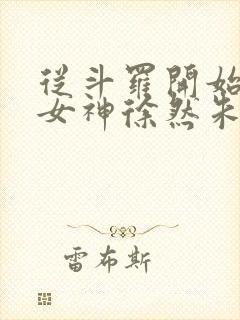 從斗羅開始
女神徐然朱
雷布斯